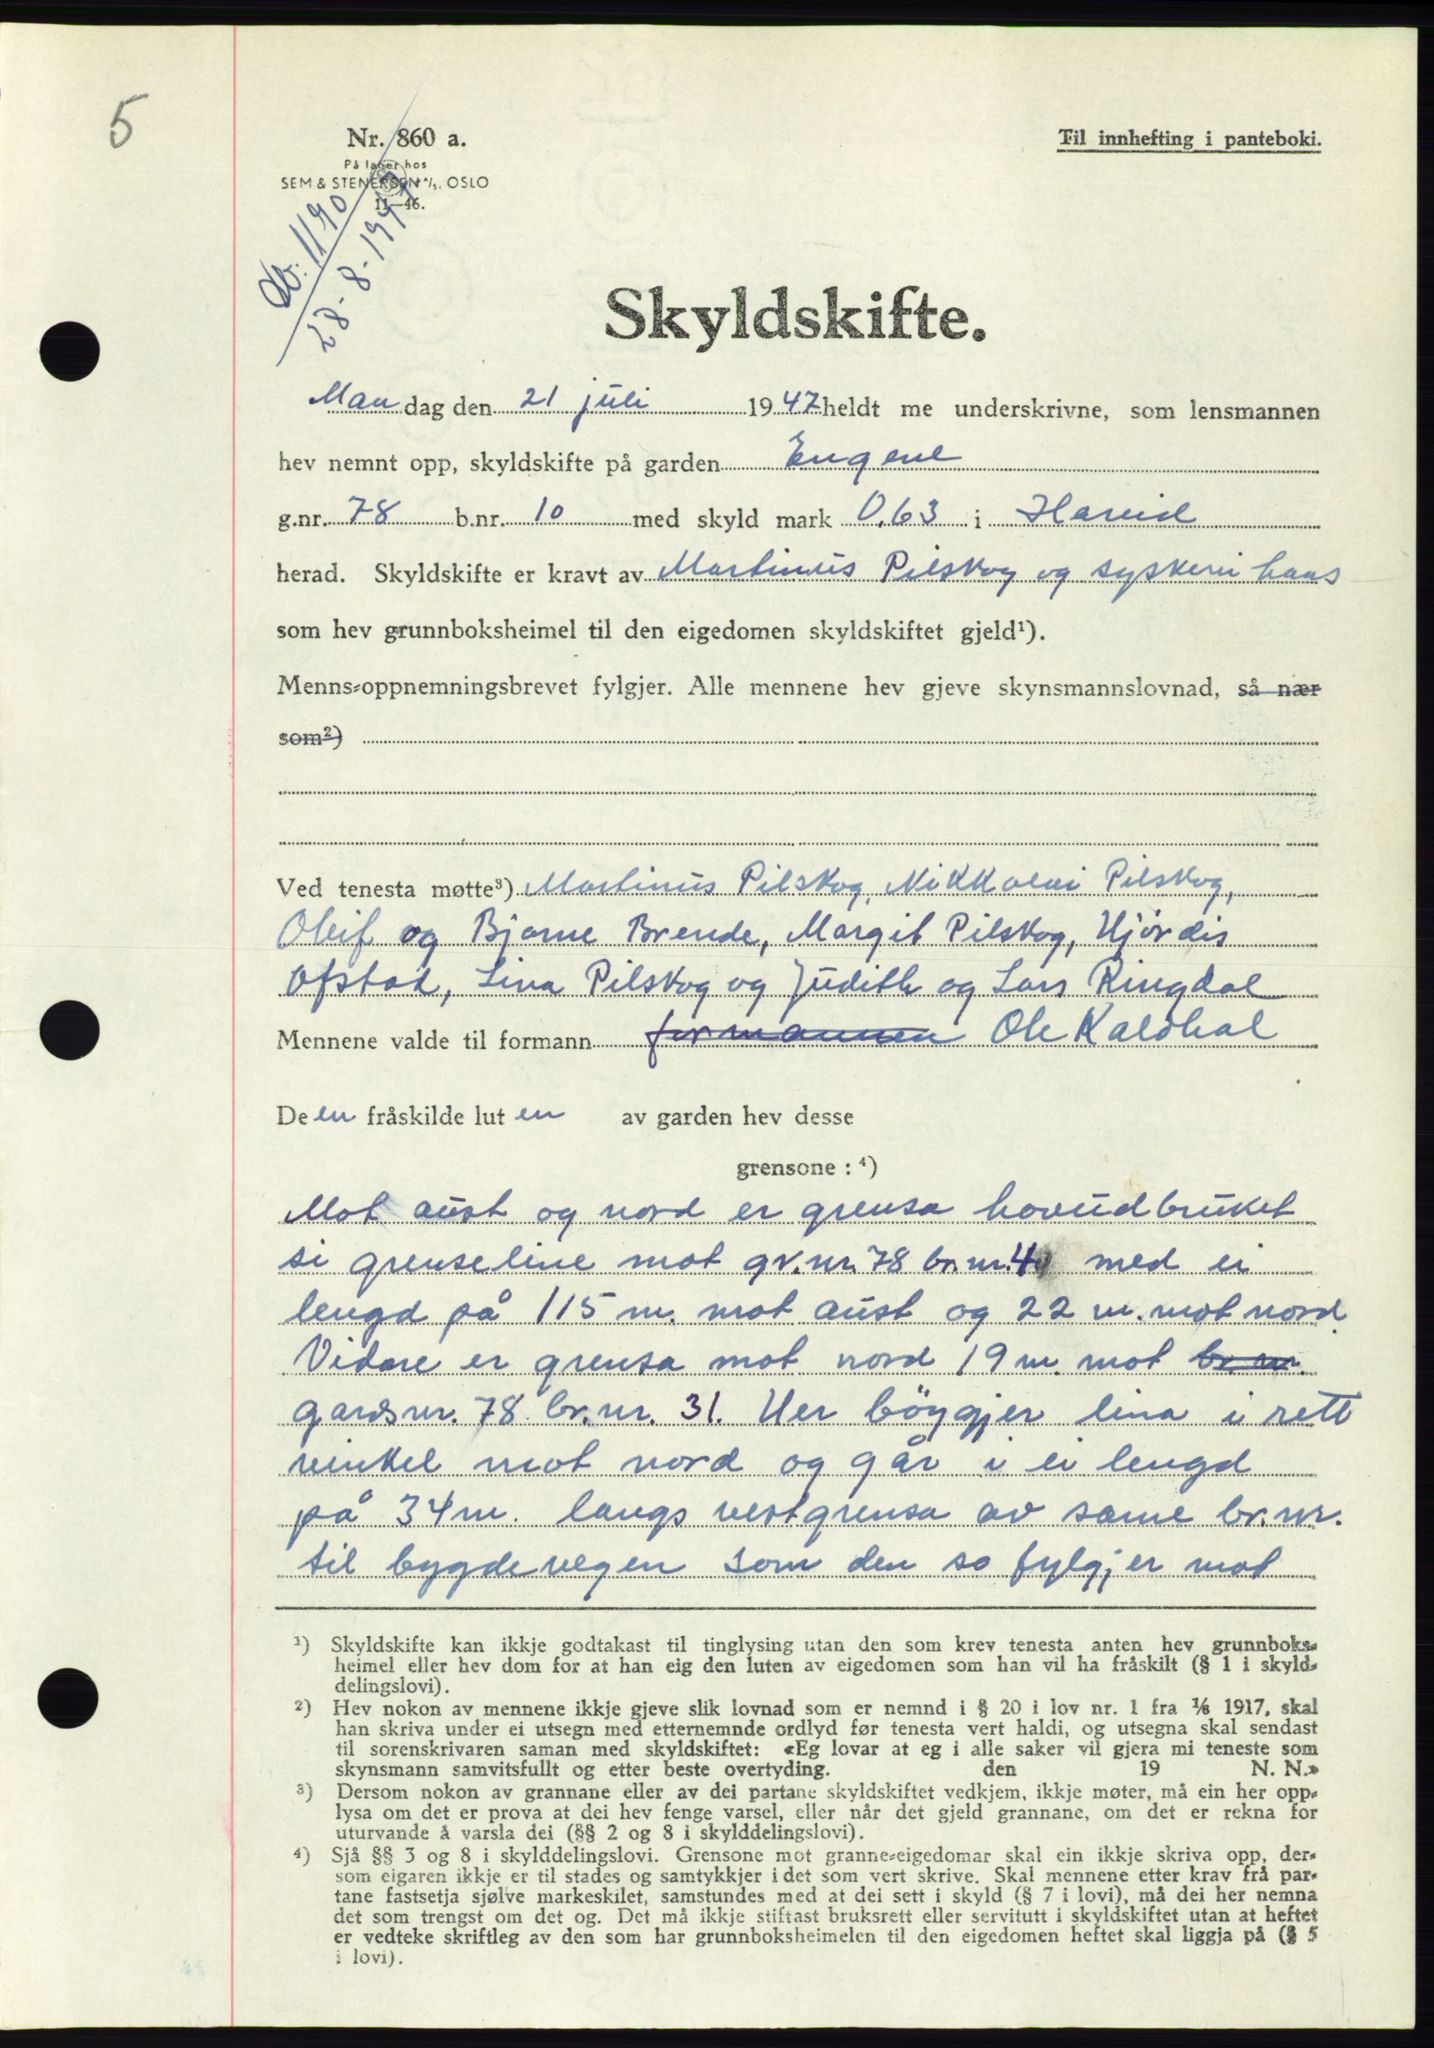 5
Nr. 860 a.
På lager hos
SEM & STENERSEN A/S, OSLO
11—46.
Til innhefting i panteboki.
Db. 1190
28-8-1947
Skyldskifte.
Mandag den 21 juli 1947 heldt me underskrivne, som lensmannen
hev nemnt opp, skyldskifte på garden Engene
g.nr. 78 b.nr. 10 med skyld mark 0,63 i Hareid
herad. Skyldskifte er kravt av Martinus Pilskog og syskeni hans
som hev grunnboksheimel til den eigedomen skyldskiftet gjeld¹).
Menns-oppnemningsbrevet fylgjer. Alle mennene hev gjeve skynsmannslovnad, så nær
som²)
Ved tenesta møtte³) Martinus Pilskog, Nikkolai Pilskog,
Oleif og Bjarne Brende, Margit Pilskog, Hjördis
Ofstad, Lina Pilskog og Judith og Lars Ringdal
Mennene valde til formann formannen Ole Kaldhol
Deen fråskilde luten av garden hev desse
grensone : ⁴)
Mot aust og nord er grensa hovudbruket
si grenseline mot gr.nr. 78 br.nr. 4 med ei
lengd på 115 m. mot aust og 22 m. mot nord
Vidare er grensa mot nord 19 m mot br. nr.
gardsnr. 78 br.nr. 31. Her böygjer lina i rett
vinkel mot nord og går i ei lengd
på 34 m. langs vestgrensa av same br.nr.
til bygdevegen som den so fylgjer mot
¹) Skyldskifte kan ikkje godtakast til tinglysing utan den som krev tenesta anten hev grunnboks-
heimel eller hev dom for at han eig den luten av eigedomen som han vil ha fråskilt (§ 1 i skyld-
delingslovi).
²) Hev nokon av mennene ikkje gjeve slik lovnad som er nemnd i § 20 i lov nr. 1 fra 1/6 1917, skal
han skriva under ei utsegn med etternemnde ordlyd før tenesta vert haldi, og utsegna skal sendast
til sorenskrivaren saman med skyldskiftet: «Eg lovar at eg i alle saker vil gjera mi teneste som
skynsmann samvitsfullt og etter beste overtyding. den 19 N. N.»
³) Dersom nokon av grannane eller av dei partane skyldskiftet vedkjem, ikkje møter, må ein her opp-
lysa om det er prova at dei hev fenge varsel, eller når det gjeld grannane, om det er rekna for
uturvande å varsla dei (§§ 2 og 8 i skylddelingslovi).
⁴) Sjå §§ 3 og 8 i skylddelingslovi. Grensone mot granne-eigedomar skal ein ikkje skriva opp, der-
som eigaren ikkje er til stades og samtykkjer i det som vert skrive. Skal mennene etter krav frå par-
tane fastsetja sjølve markeskilet, samstundes med at dei sett i skyld (§ 7 i lovi), må dei her nemna
det som trengst om det og. Det må ikkje stiftast bruksrett eller servitutt i skyldskiftet utan at heftet
er vedteke skriftleg av den som har grunnboksheimelen til den eigedomen heftet skal liggja på (§ 5
i lovi).